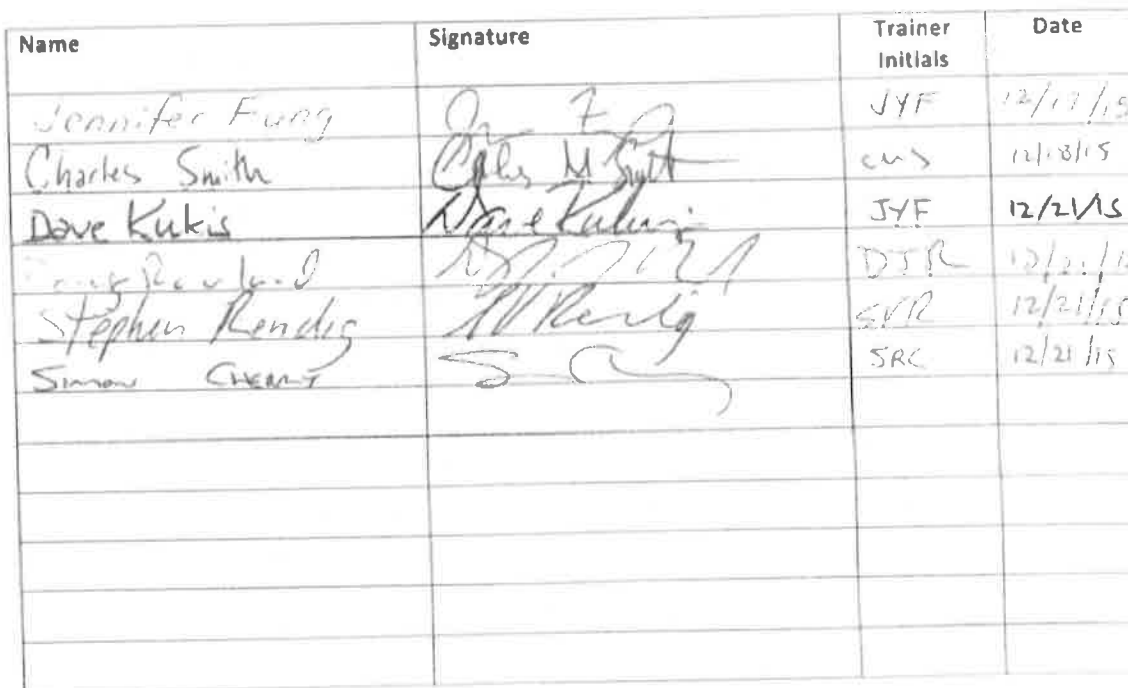 Name Signature Trainer Initials Date
Jennifer Fung JYF 12/17/15
Charles Smith Charles M Smith CMS 12/18/15
Dave Kukis Dave Kukis JYF 12/21/15
Rowland DJR
Stephen Rendig SVRendig SVR 12/21/15
Simon Cherry SRC 12/21/15